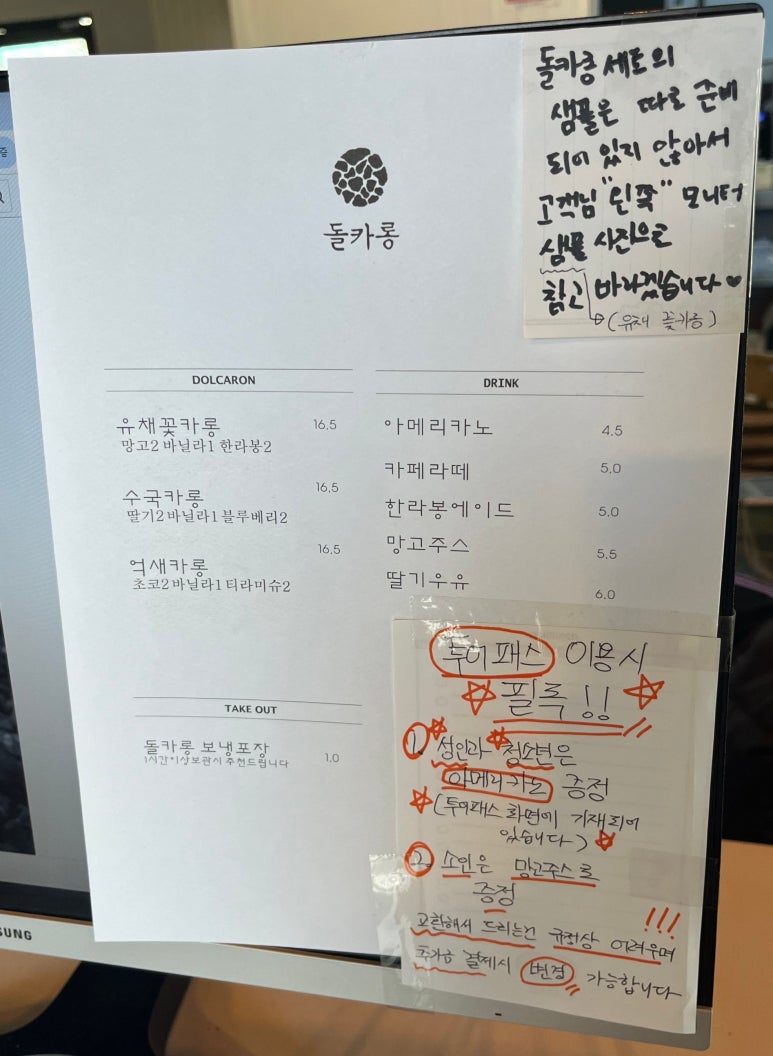 돌카롱 세트의
샘플은 따로 준비
되어 있지 않아서
고객님 "왼쪽" 모니터
샘플 사진으로
참고 바라겠습니다♥
(유채 꽃카롱)
돌카롱
DOLCARON
유채꽃카롱 16.5
망고2 바닐라1 한라봉2
수국카롱 16.5
딸기2 바닐라1 블루베리2
억새카롱 16.5
초코2 바닐라1 티라미슈2
DRINK
아메리카노 4.5
카페라떼 5.0
한라봉에이드 5.0
망고주스 5.5
딸기우유 6.0
TAKE OUT
돌카롱 보냉포장 1.0
1시간*이상보관시 추천드립니다
투어패스 이용시
☆필독!!☆
1. 성인과 청소년은
아메리카노 증정
☆(투어패스 화면에 기재되어
있습니다)☆
2. 소인은 망고주스로
증정
교환해서 드리는건 규정상 어려우며!!!
추가금 결제시 변경 가능합니다
SUNG